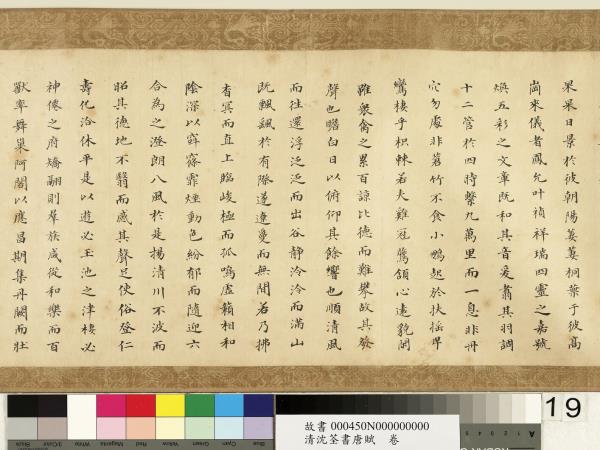 杲杲日景於彼朝陽萋萋桐葉于彼高
崗來儀者鳳允叶禎祥瑞四靈之嘉號
煥五彩之文章既和其音爰肅其羽調
十二管於四時擊九萬里而一息非丹
穴勿處非慕竹不食小鷃起於扶搖卑
鸞棲乎枳棘若夫雞冠鷰頷心遠貌閑
雖衆禽之累百諒比德而難擧故其發
聲也瞻白日以俯仰其餘響也順清風
而往還浮泛泛而出谷静泠泠而滿山
既飄飖於有際遂遼敻而無閒若乃拂
杳冥而直上臨峻極而孤鳴虛籟相和
陰深以窅窱霏煙動色紛郁而隨迎六
合為之澄朗八風於是揚清川不波而
昭其德地不翳而感其聲足使俗登仁
壽化洽休平是以遊必玉池之津棲必
神僊之府矯翮則羣族咸從和樂而百
獸率舞巢阿閣以應昌期集丹闕而壯
19
故書 000450N000000000
清沈荃書唐賦 卷
Black
3/Color
White
Magenta
Red
Yellow
Green
Cyan
Blue
A